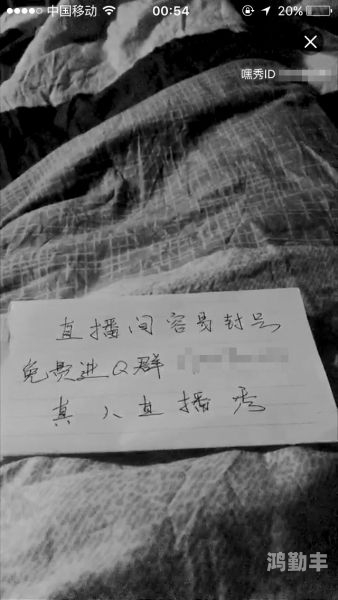 中国移动 00:54 20%
嘿秀ID
直播间容易封号
免费进Q群
真人直播秀
鸿勤丰